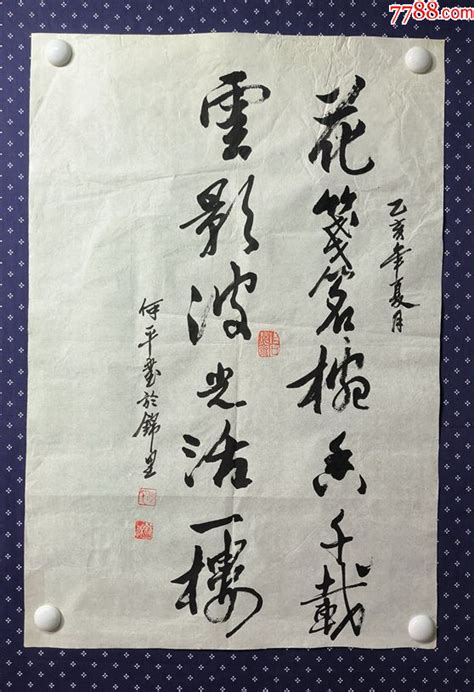 7788.com
乙亥年夏月
花箋茗椀香千載
雲影波光活一樓
何平書於錦里